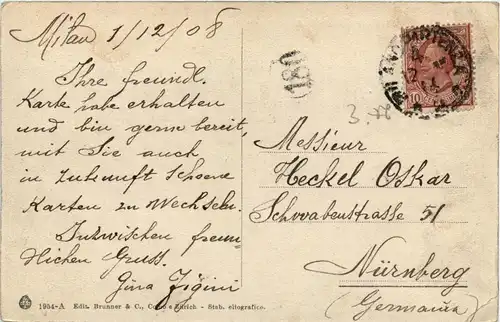 Milan 1/12/08
Ihre freundl.
Karte habe erhalten
und bin gern bereit,
mit Sie auch
in Zukunft Schoene
Karten zu Wechseln.
Inzwischen freun
dlichen Gruss.
Gina Figini
1954-A Edit. Brunner & C., Como e Zürich - Stab. eliografico.
(184)
3.
10
Messieur
Heckel Oskar
Schwabenstrasse 51
Nürnberg
(Germania)